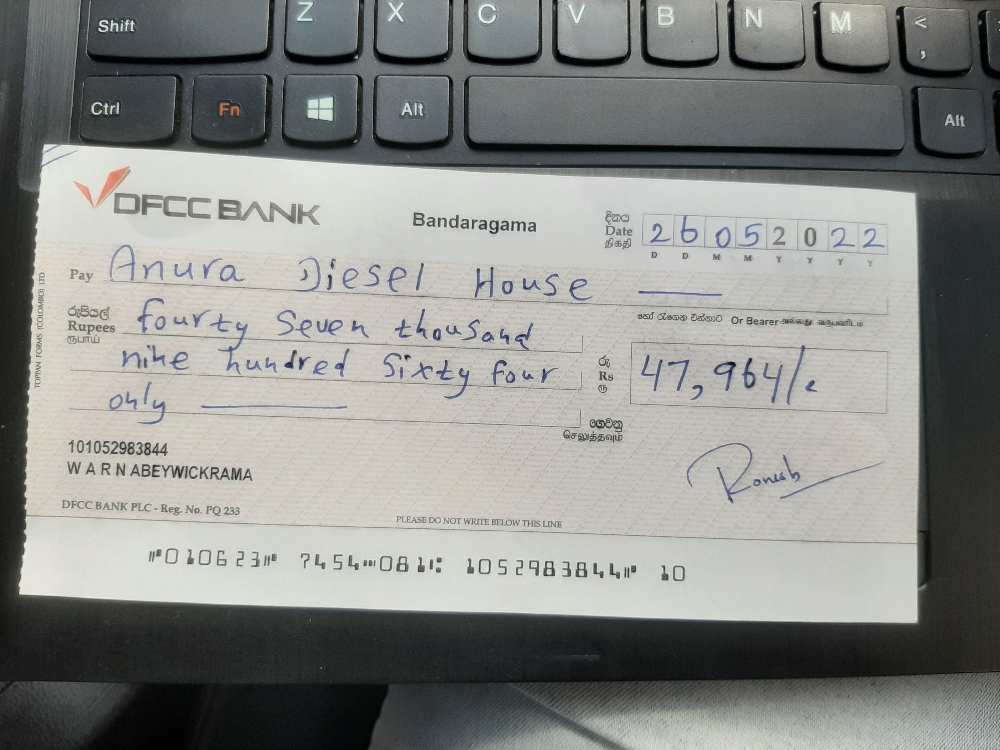 Shift Z X C V B N M < ,
Ctrl Fn Alt Alt
DFCC BANK
Bandaragama
දිනය
Date
திகதி
2 6 0 5 2 0 2 2
D D M M Y Y Y Y
Pay Anura Diesel House
හෝ රැගෙන එන්නාට Or Bearer அல்லது வருபவரிடம்
රුපියල්
Rupees
ரூபாய்
fourty Seven thousand
nine hundred Sixty four
only
රු
Rs
ரூ
47,964/-
ගෙවනු
செலுத்தவும்
TOPPAN FORMS (COLOMBO) LTD
101052983844
W A R N ABEYWICKRAMA
DFCC BANK PLC - Reg. No. PQ 233
PLEASE DO NOT WRITE BELOW THIS LINE
⑈010623⑈ 7454⑉081⑆ 1052983844⑈ 10